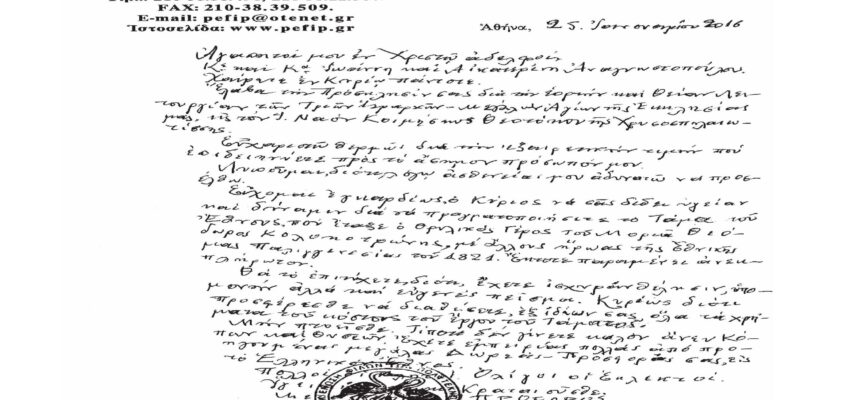 FAX: 210-38.39.509.
E-mail: pefip@otenet.gr
Ἱστοσελίδα: www.pefip.gr
Ἀθήνα, 25 Ἰανουαρίου 2016
Ἀγαπητοί μου ἐν Χριστῷ ἀδελφοί
Κε καί Κα Ἰωάννη καί Αἰκατερίνη Ἀναγνωστοπούλου.
Χαίρετε ἐν Κυρίῳ πάντοτε.
Ἔλαβα τήν Πρόσκλησίν σας διά τήν ἑορτήν καί Θείαν Λει-
τουργίαν τῶν Τριῶν Ἱεραρχῶν - Μεγάλων Ἁγίων τῆς Ἐκκλησίας
μας, εἰς τόν Ἱ. Ναόν Κοιμήσεως Θεοτόκου τῆς Χρυσοσπηλαιω-
τίσσης.
Εὐχαριστῶ θερμῶς διά τήν ἐξαιρετικήν τιμήν πού
ἐπιδεικνύετε πρός τό ἄσημον πρόσωπόν μου.
Λυποῦμαι, διότι λόγῳ ἀσθενείας μου ἀδυνατῶ νά προσ-
έλθω.
Εὔχομαι ἐγκαρδίως, ὁ Κύριος νά σᾶς δίδει ὑγείαν
καί δύναμιν διά νά πραγματοποιήσετε τό Τάμα τοῦ
Ἔθνους, πού ἔταξε ὁ θρυλικός Γέρος τοῦ Μοριᾶ Θεό-
δωρος Κολοκοτρώνης, μέ ἄλλους ἥρωας τῆς ἐθνικῆς
μας παλιγγενεσίας τοῦ 1821. Ἔκτοτε παραμένει ἀνεκ-
πλήρωτον.
Θά τό ἐπιτύχετε, διότι ἔχετε ἰσχυράν θέλησιν, ὑπο-
μονήν ἀλλά καί εὐγενές πεῖσμα. Κυρίως διότι
προσφέρεσθε νά διαθέσετε, ἐξ ἰδίων σας, ὅλα τά χρή-
ματα τοῦ κόστους τοῦ ἔργου τοῦ Τάματος.
Μήν πτοῆσθε. Τίποτε δέν γίνεται καλόν ἄνευ Κό-
πων καί θυσιῶν. Ἔχετε ἐμπειρίας πολλάς ἀπό προ-
ηγουμένας μεγάλας Δωρεάς - Προσφοράς σας, εἰς
τό Ἑλληνικόν Ἔθνος.
Πολλοί Ὀλίγοι οἱ Ἐκλεκτοί.
Κραταιοῦσθε.